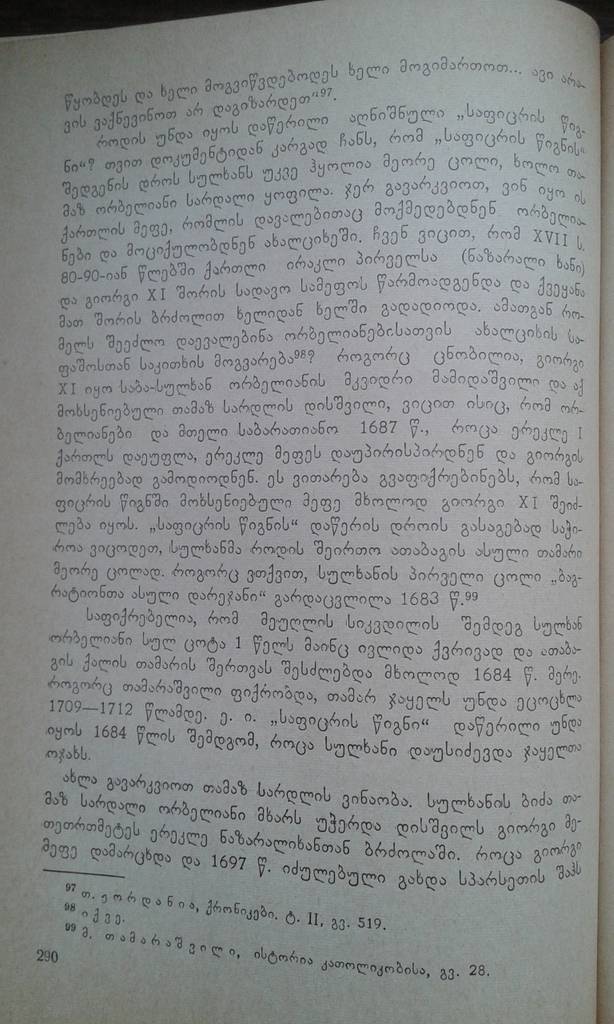 წყობდეს და ხელი მოგვიწვდებოდეს ხელი მოგიმართოთ... ავი არა-
ვის ვაქნევინოთ არ დაგიზარდეთ“97.
როდის უნდა იყოს დაწერილი აღნიშნული „საფიცრის წიგ-
ნი“? თვით დოკუმენტიდან კარგად ჩანს, რომ „საფიცრის წიგნის“
შედგენის დროს სულხანს უკვე ჰყოლია მეორე ცოლი, ხოლო თა-
მაზ ორბელიანი სარდალი ყოფილა. ჯერ გავარკვიოთ, ვინ იყო ის
ქართლის მეფე, რომლის დავალებითაც მოქმედებდნენ ორბელია-
ნები და მოციქულობდნენ ახალციხეში. ჩვენ ვიცით, რომ XVII ს.
80-90-იან წლებში ქართლი ირაკლი პირველსა (ნაზარალი ხანი)
და გიორგი XI შორის სადავო სამეფოს წარმოადგენდა და ქვეყანა
მათ შორის ბრძოლით ხელიდან ხელში გადადიოდა. ამათგან რო-
მელს შეეძლო დაევალებინა ორბელიანებისათვის ახალციხის სა-
ფაშოსთან საკითხის მოგვარება98? როგორც ცნობილია, გიორგი
XI იყო საბა-სულხან ორბელიანის მკვიდრი მამიდაშვილი და აქ
მოხსენიებული თამაზ სარდლის დისშვილი, ვიცით ისიც, რომ ორ-
ბელიანები და მთელი საბარათიანო 1687 წ., როცა ერეკლე I
ქართლს დაეუფლა, ერეკლე მეფეს დაუპირისპირდნენ და გიორგის
მომხრეებად გამოდიოდნენ. ეს ვითარება გვაფიქრებინებს, რომ სა-
ფიცრის წიგნში მოხსენიებული მეფე მხოლოდ გიორგი XI შეიძ-
ლება იყოს. „საფიცრის წიგნის“ დაწერის დროის გასაგებად საჭი-
როა ვიცოდეთ, სულხანმა როდის შეირთო ათაბაგის ასული თამარი
მეორე ცოლად. როგორც ვთქვით, სულხანის პირველი ცოლი „ბაგ-
რატიონთა ასული დარეჯანი“ გარდაცვლილა 1683 წ.99
საფიქრებელია, რომ მეუღლის სიკვდილის შემდეგ სულხან
ორბელიანი სულ ცოტა 1 წელს მაინც ივლიდა ქვრივად და ათაბა-
გის ქალის თამარის შერთვას შესძლებდა მხოლოდ 1684 წ. მერე.
როგორც თამარაშვილი ფიქრობდა, თამარ ჯაყელს უნდა ეცოცხლა
1709—1712 წლამდე. ე. ი. „საფიცრის წიგნი“ დაწერილი უნდა
იყოს 1684 წლის შემდგომ, როცა სულხანი დაუსიძევდა ჯაყელთა
ოჯახს.
ახლა გავარკვიოთ თამაზ სარდლის ვინაობა. სულხანის ბიძა თა-
მაზ სარდალი ორბელიანი მხარს უჭერდა დისშვილს გიორგი მე-
თერთმეტეს ერეკლე ნაზარალიხანთან ბრძოლაში. როცა გიორგი
მეფე დამარცხდა და 1697 წ. იძულებული გახდა სპარსეთის შაჰს
97 თ. ჟორდანია, ქრონიკები. ტ. II, გვ. 519.
98 იქვე.
99 მ. თამარაშვილი, ისტორია კათოლიკობისა, გვ. 28.
290